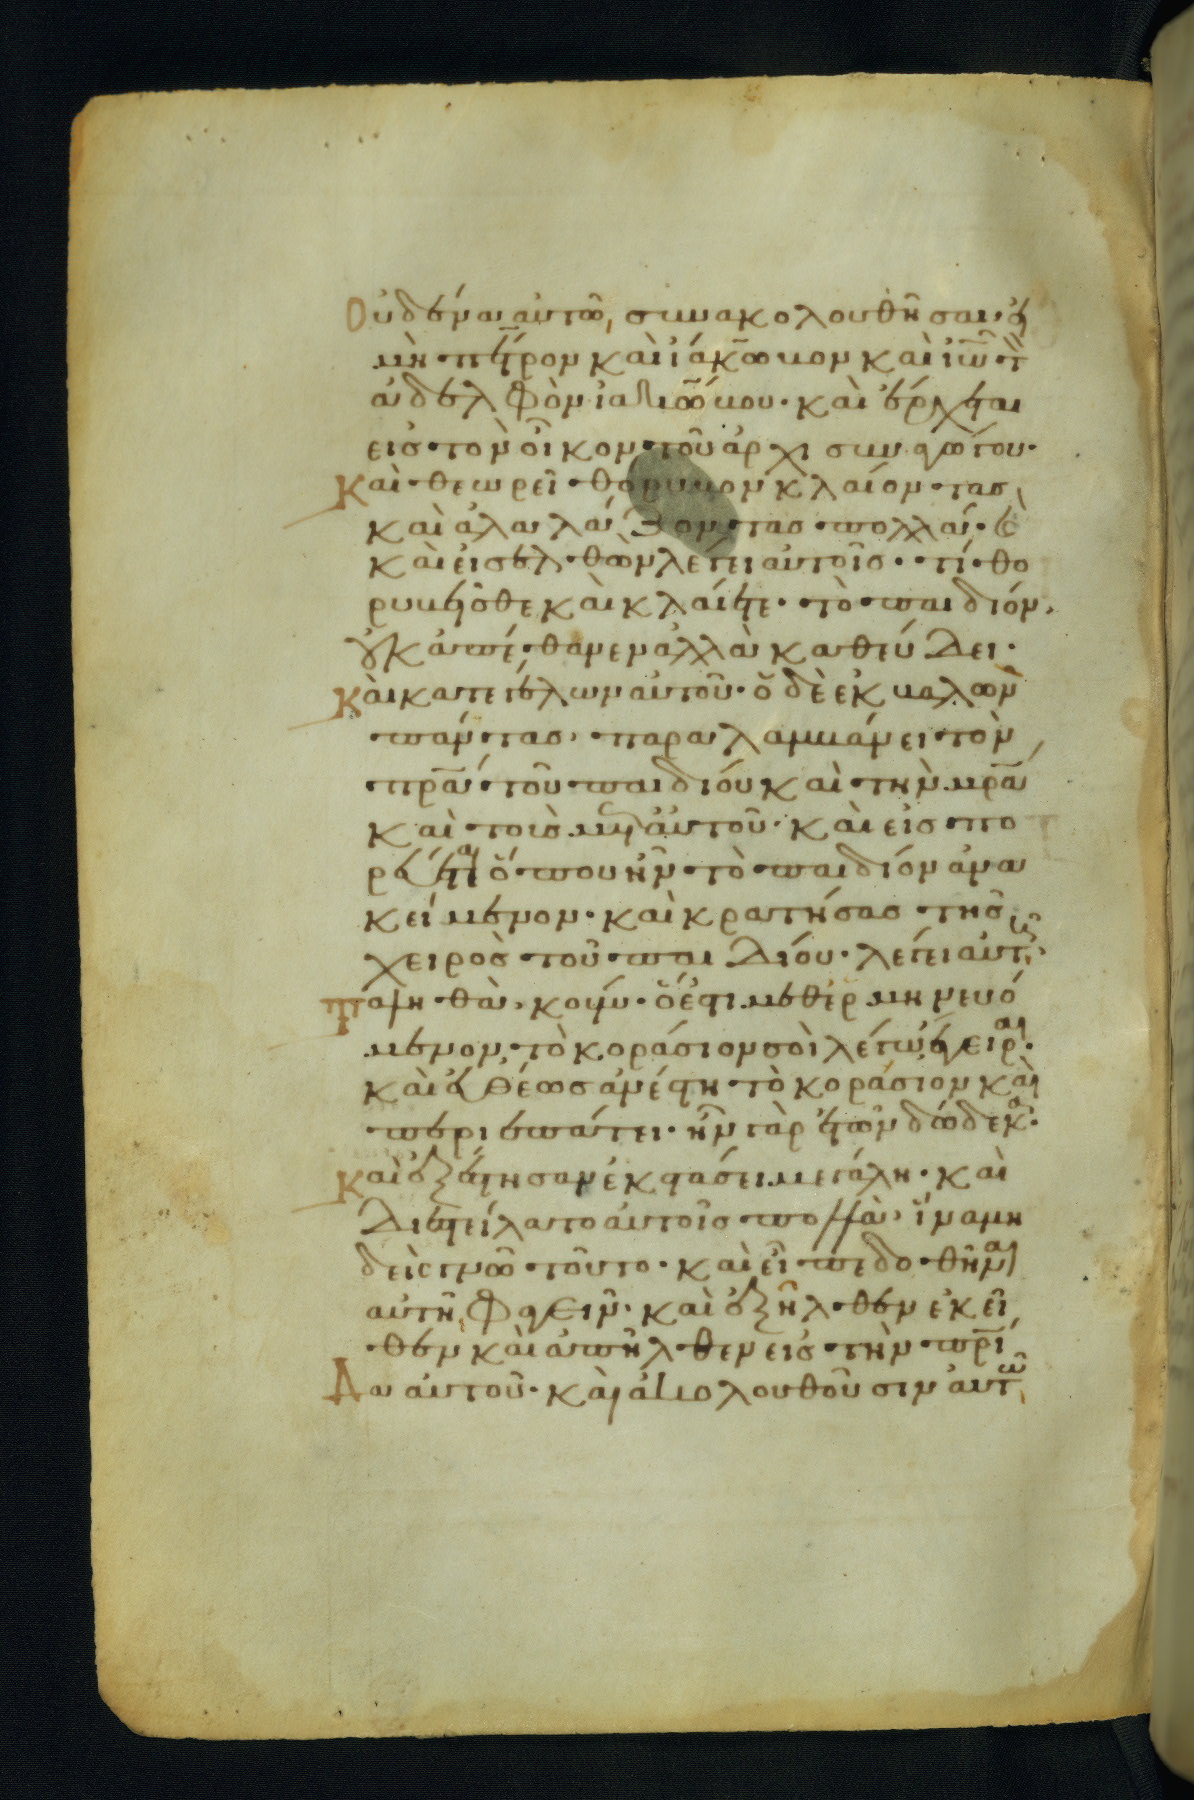 Οὐδένα αὐτῶ, συνακολουθῆσαι εἰ
μὴ πέτρον καὶ ἰάκωβον καὶ ἰω τ
ἀδελφὸν ἰακώβου· καὶ ἔρχεται
εἰς τὸν οἶκον τοῦ ἀρχισυναγώγου·
Καὶ θεωρεῖ θόρυβον κλαίοντας
καὶ ἀλαλάζοντας πολλά·
καὶ εἰσελθὼν λέγει αὐτοῖς· τί θο
ρυβῆσθε καὶ κλαίετε· τὸ παιδίον,
οὐκ ἀπέθανεν ἀλλὰ καθεύδει·
Καὶ κατεγέλων αὐτοῦ· ὁ δὲ ἐκβαλὼν
πάντας, παραλαμβάνει τὸν
πρα τοῦ παιδίου καὶ τὴν μρα
καὶ τοὺς μετ αὐτοῦ· καὶ εἰσπο
ρεύεται ὅπου ἦν τὸ παιδίον ἀνα
κείμενον· καὶ κρατήσας τῆς
χειρὸς τοῦ παιδίου· λέγει αὐτῆ·
Ταληθὰ, κούμι· ὅ ἐστι μεθερμηνευό
μενον· τὸ κοράσιον σοὶ λέγω ἔγειραι·
καὶ εὐθέως ἀνέστη τὸ κοράσιον καὶ
περιεπάτει· ἦν γὰρ ἐτῶν δώδεκα·
Καὶ ἐξέστησαν ἐκστάσει μεγάλη· καὶ
διεστείλατο αὐτοῖς πολλὰ, ἵνα μη
δεὶς γνῶ τοῦτο· καὶ εἶπε δοθῆναι
αὐτῆ φαγεῖν· καὶ ἐξῆλθεν ἐκεῖ
θεν καὶ ἀπῆλθεν εἰς τὴν πρί
Δα αὐτοῦ· καὶ ἀκολουθοῦσιν αὐτῶ